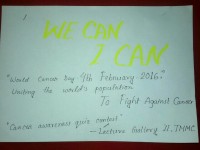 WE CAN
I CAN
"World Cancer Day 4th February - 2016"
Uniting the world's population
To Fight Against Cancer
"Cancer awareness quiz contest"
- Lecture Gallery II, TMMC